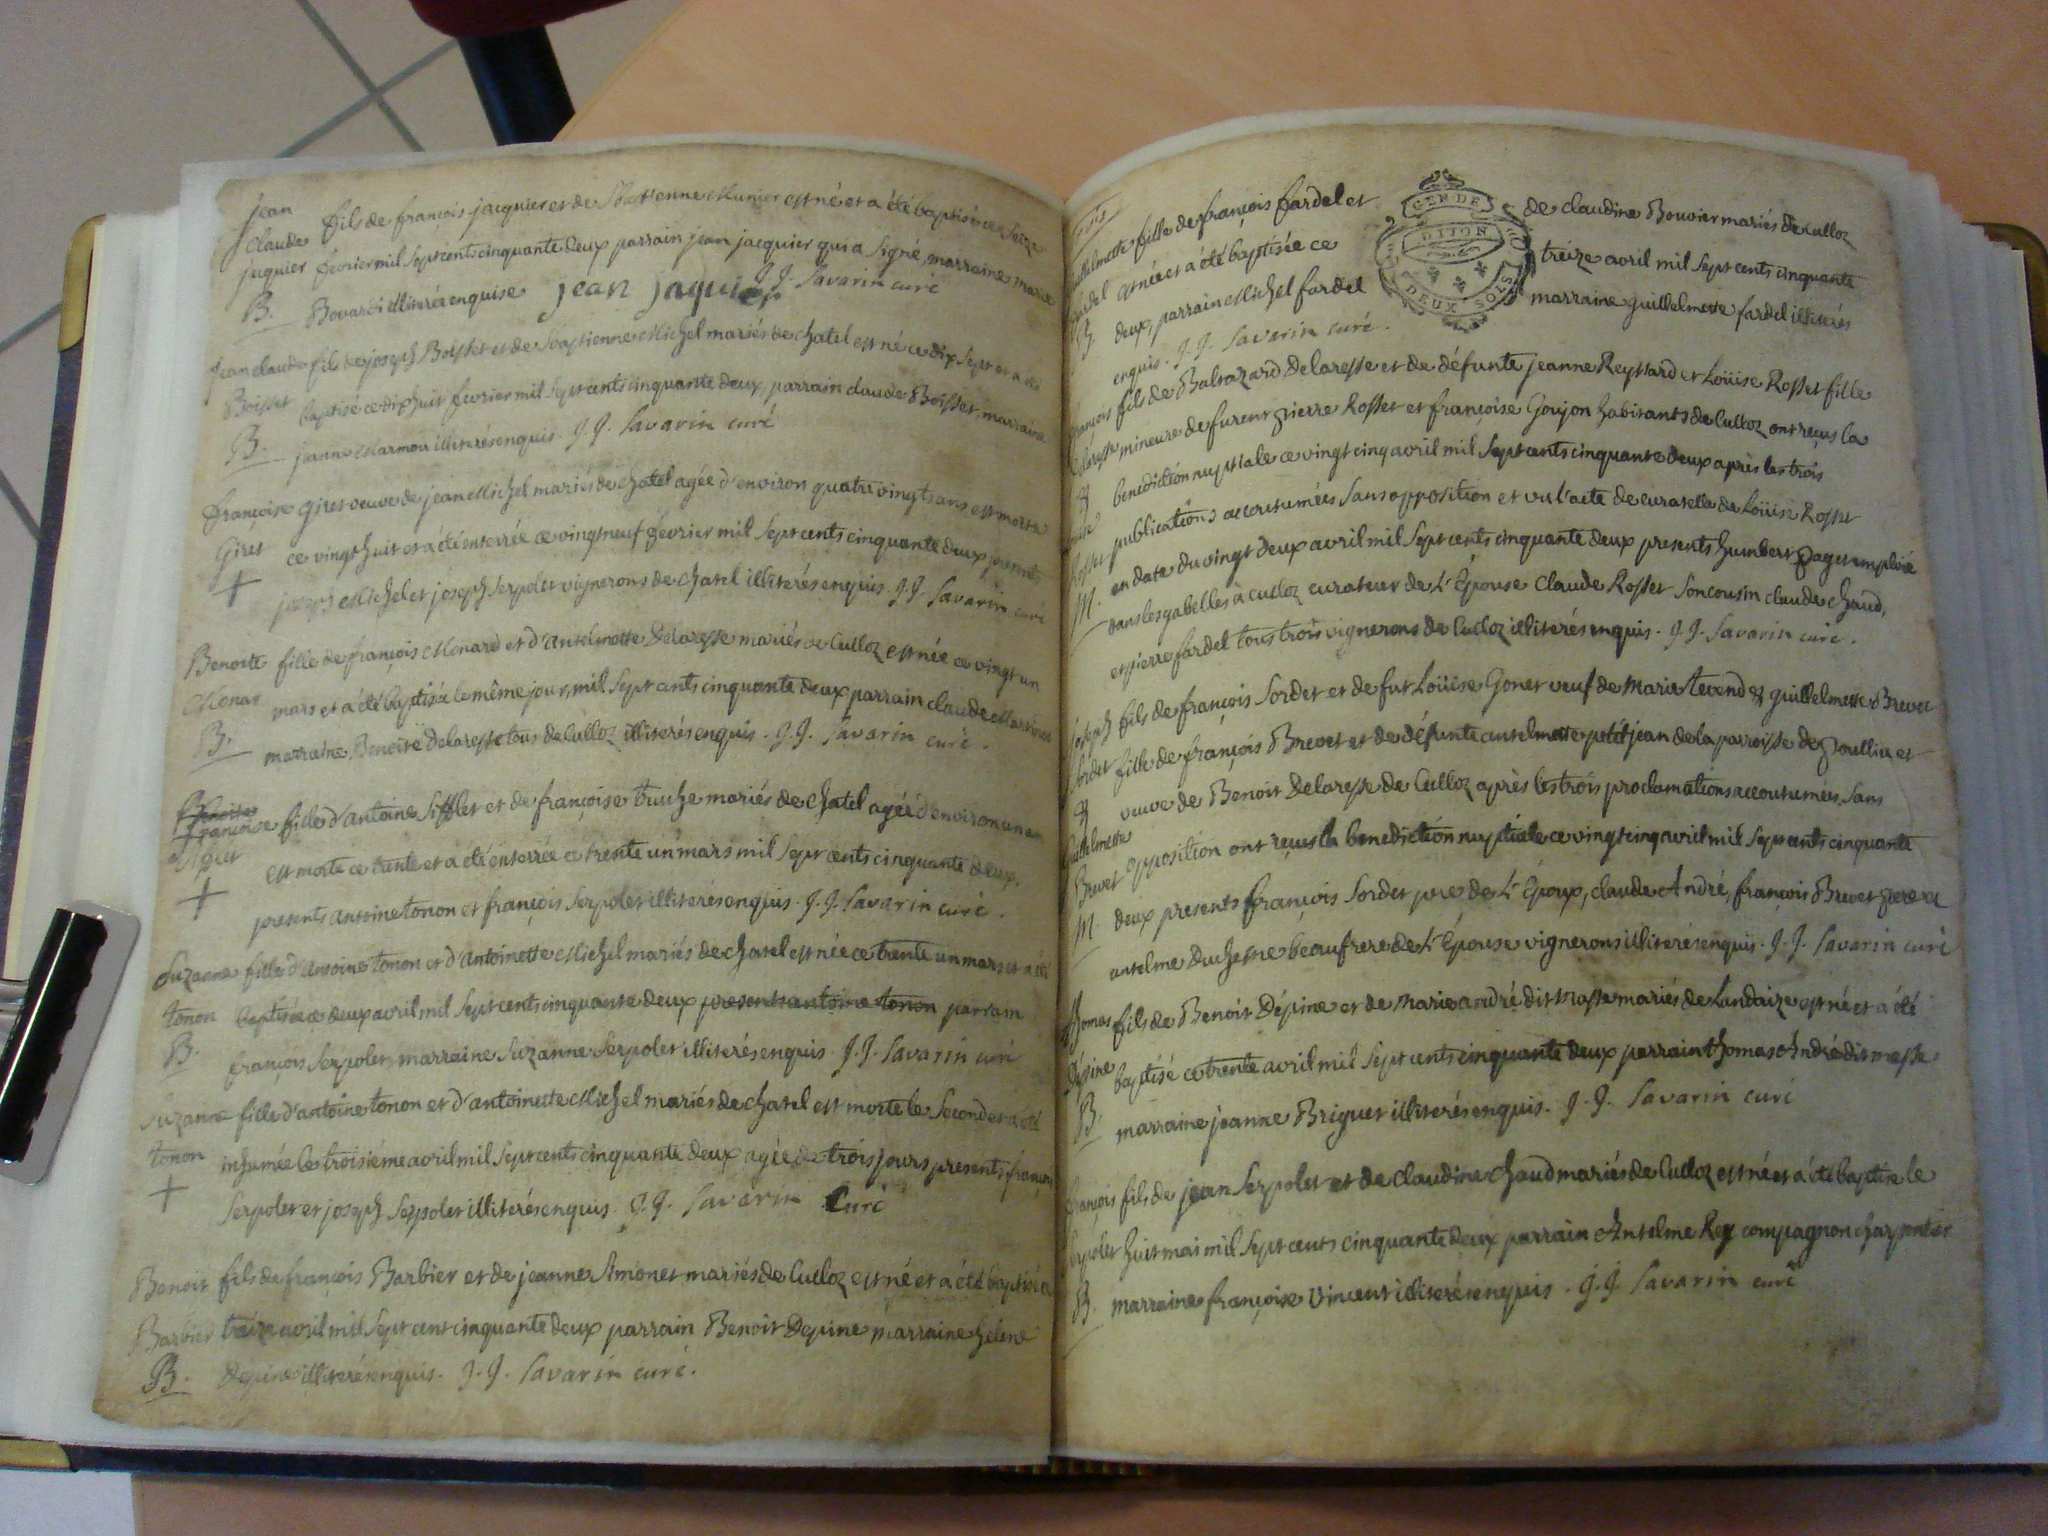 Jean
Claude
jaquier
B.
fils de françois jacquier et de Sbastienne Munier est né et a été baptisé ce Seize
fevrier mil Sept cents cinquante deux parrain jean jacquier qui a signé, marraine marie
Bovard illiteré enquise jean jaquier J.J. Savarin curé
Jean claude fils de joseph Boisset et de Sbastienne Michel mariés de chatel est né ce dix Sept et a été
Boisset
B.
baptisé ce dix huit fevrier mil Sept cents cinquante deux, parrain claude Boisset, marraine
jeanne Marmou illiterés enquis. J.J. Savarin curé
françoise
Giret
+
Giret veuve de jean Michel mariés de chatel agée d'environ quatre vingts ans est morte
ce vingt huit et a été enterrée ce vingt neuf fevrier mil Sept cents cinquante deux presents
joseph Michel et joseph Serpolet vignerons de chatel illiterés enquis. J.J. Savarin curé
Benoite
Monar
B.
fille de françois Monard et d'Antelmette Delaresse mariés de Culloz est née ce vingt un
mars et a été baptisée le même jour, mil Sept cents cinquante deux parrain claude
marraine Benoite Delaresse tous de Culloz illiterés enquis. J.J. Savarin curé.
françoise
+
fille d'antoine Sifflet et de françoise truche mariés de chatel agée d'environ un an
est morte ce trente et a été enterrée ce trente un mars mil Sept cents cinquante deux.
presents antoine tonon et françois Serpolet illiterés enquis. J.J. Savarin curé.
Suzanne
tonon
B.
fille d'Antoine tonon et d'Antoinette Michel mariés de chatel est née ce trente un mars et a été
baptisée ce deux avril mil Sept cents cinquante deux presents antoine tonon parrain
françois Serpolet, marraine Suzanne Serpolet illiterés enquis. J.J. Savarin curé
Suzanne
tonon
+
fille d'antoine tonon et d'antoinette Michel mariés de chatel est morte le Second et a été
inhumée le troisième avril mil Sept cents cinquante deux agée de trois jours presents françois
Serpolet et joseph Serpolet illiterés enquis. J.J. Savarin Curé
Benoit
Barbier
B.
fils de françois Barbier et de jeanne Amonet mariés de Culloz est né et a été baptisé ce
treize avril mil Sept cent cinquante deux parrain Benoit Depine marraine helene
Depine illiterés enquis. J.J. Savarin curé.
GEN DE
DIJON
DEUX SOLS
Guillelmette
fardel
B.
fille de françois fardel et de claudine Bouvier mariés de Culloz
est née et a été baptisée ce treize avril mil Sept cents cinquante
deux, parrain Michel fardel marraine guillelmette fardel illiterés
enquis. J.J. Savarin curé.
françois
Delaresse
&
Louise
Rosset
M.
fils de Baltazard Delaresse et de défunte jeanne Reystard et Loüise Rosset fille
mineure de furent pierre Rosset et françoise Goujon habitants de Culloz ont reçus la
benediction nuptiale ce vingt cinq avril mil Sept cents cinquante deux après les trois
publications accoutumées Sans opposition et vu l'acte de curatelle de Loüise Rosset
en date du vingt deux avril mil Sept cents cinquante deux presents humbert Paget emploié
dans les gabelles à culloz curateur de l'Épouse Claude Rosset Son cousin claude chaud,
et pierre fardel tous trois vignerons de Culloz illiterés enquis. J.J. Savarin curé.
joseph
Sordet
&
Guillelmette
Brevet
M.
fils de françois Sordet et de fut Loüise Gonet veuf de Marie tevend et guillelmette Brevet
fille de françois Brevet et de défunte antelmette petitjean de la parroisse de Poulliu et
veuve de Benoit Delaresse de Culloz après les trois proclamations accoutumées, Sans
opposition ont reçus la benediction nuptiale ce vingt cinq avril mil Sept cents cinquante
deux presents françois Sordet pere de l'Époux, claude André, françois Brevet pere et
antelme duchesne beaufrere de l'Épouse vignerons illiterés enquis. J.J. Savarin curé
Thomas
Dépine
B.
fils de Benoit Dépine et de Marie andré dit Masse mariés de Landaize est né et a été
baptisé ce trente avril mil Sept cents cinquante deux parrain thomas André dit masse
marraine jeanne Briguet illiterés enquis. J.J. Savarin curé
françois
Serpolet
B.
fils de jean Serpolet et de claudine chaud mariés de Culloz est né et a été baptisé le
huit mai mil Sept cents cinquante deux parrain Antelme Rey compagnon charpentier
marraine françoise Vincent illiterés enquis. J.J. Savarin curé